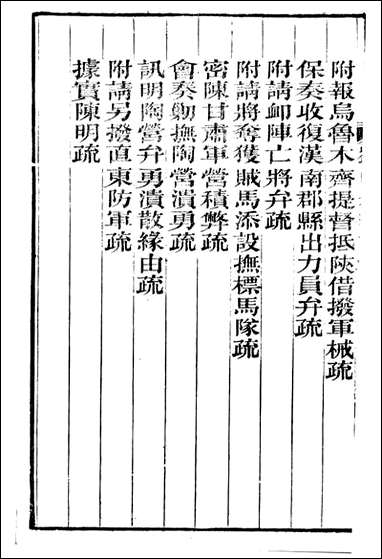 附報烏魯木齊提督抵陝借撥軍械疏
保奏收復漢南郡縣出力員弁疏
附請卹陣亡將弁疏
附請將奪獲賊馬添設撫標馬隊疏
密陳甘肅軍營積弊疏
會奏剿撫陶營潰勇疏
訊明陶營弁勇潰散緣由疏
附請另撥直東防軍疏
據實陳明疏